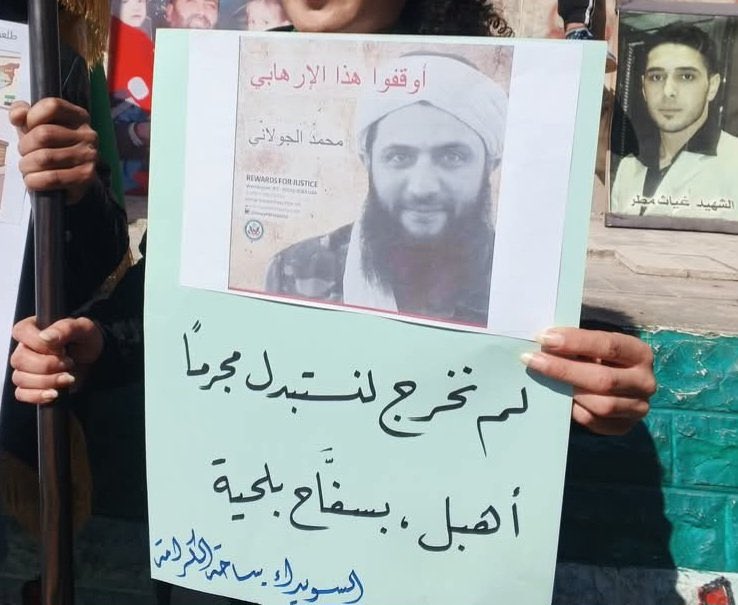 أوقفوا هذا الإرهابي
محمد الجولاني
REWARDS FOR JUSTICE
لم نخرج لنستبدل مجرمًا
أهبل، بسفَّاح بلحية
السويداء ساحة الكرامة
الشهيد غياث مطر